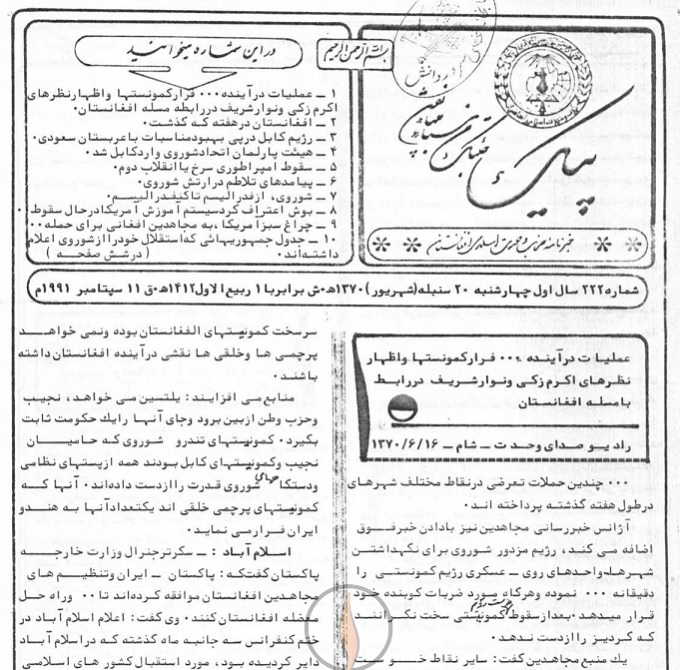 در این شماره میخوانید
۱ ــ عملیات در آینده ۰۰۰ فرار کمونستها و اظهار نظرهای
اکرم زکی و نواز شریف در رابطه مسله افغانستان۰
۲ ــ افغانستان در هفته که گذشت۰
۳ ــ رژیم کابل در پی بهبود مناسبات با عربستان سعودی۰
۴ ــ هیئت پارلمان اتحاد شوروی وارد کابل شد۰
۵ ــ سقوط امپراطوری سرخ یا انقلاب دوم۰
۶ ــ پیامدهای تلاطم در ارتش شوروی۰
۷ ــ شوروی، از فدرالیسم تا کنفدرالیسم۰
۸ ــ بوش اعتراف کرد سیستم آموزش آمریکا در حال سقوط۰
۹ ــ چراغ سبز آمریکا، به مجاهدین افغانی برای حمله۰۰
۱۰ ــ جدول جمهوریهائی که استقلال خود را از شوروی اعلام
داشته‌اند۰ ( در شش صفحه )
بسم الله الرحمن الرحیم
پیام
خبرنامه حزب وحدت اسلامی افغانستان
شماره ۲۲۲ سال اول چهارشنبه ۲۰ سنبله (شهریور) ۱۳۷۰ه‍۰ش برابر با ۱ ربیع الاول ۱۴۱۲ه‍۰ق ۱۱ سپتامبر ۱۹۹۱م
عملیات در آینده ۰۰۰ فرار کمونستها و اظهار
نظرهای اکرم زکی و نواز شریف در رابط
با مسله افغانستان
رادیو صدای وحدت ــ شام ــ ۱۳۷۰/۶/۱۶
۰۰۰ چندین حملات تعرضی در نقاط مختلف شهرهای
در طول هفته گذشته پرداخته اند۰
آژانس خبررسانی مجاهدین نیز با دادن خبر فوق
اضافه می کند، رژیم مزدور شوروی برای نگهداشتن
شهرها، واحدهای روی ــ عسکری رژیم کمونستی را
دقیقانه ۰۰۰ نموده و هرگاه مورد ضربات کوبنده خود
قرار میدهد۰ بعد از سقوط کمونیستی سخت نگرانند
که گردیز را از دست ندهد۰
یک منبع مجاهدین گفت: سایر نقاط خوست
سر سخت کمونستهای افغانستان بوده و نمی خواهد
پرچمی ها و خلقی ها نقشی در آینده افغانستان داشته
باشند۰
منابع می افزایند: یلتسین می خواهد، نجیب
و حزب وطن از بین برود و جای آنها را یک حکومت ثابت
بگیرد۰ کمونیستهای تندرو شوروی که حامیان
نجیب و کمونیستهای کابل بودند همه از پستهای نظامی
و دستگاههای شوروی قدرت را از دست داده‌اند۰ آنها که
کمونیستهای پرچمی خلقی اند یکتعداد آنها به هندو
ایران فرار می نماید۰
اسلام آباد : ــ سکرتر جنرال وزارت خارجه
پاکستان گفت که: پاکستان ــ ایران و تنظیم های
مجاهدین افغانستان موافقه کرده‌اند تا ۰۰ و راه حل
معضله افغانستان کنند۰ وی گفت: اعلام اسلام آباد در
ختم کنفرانس سه جانبه ماه گذشته که در اسلام آباد
دایر گردیده بود، مورد استقبال کشور های اسلامی